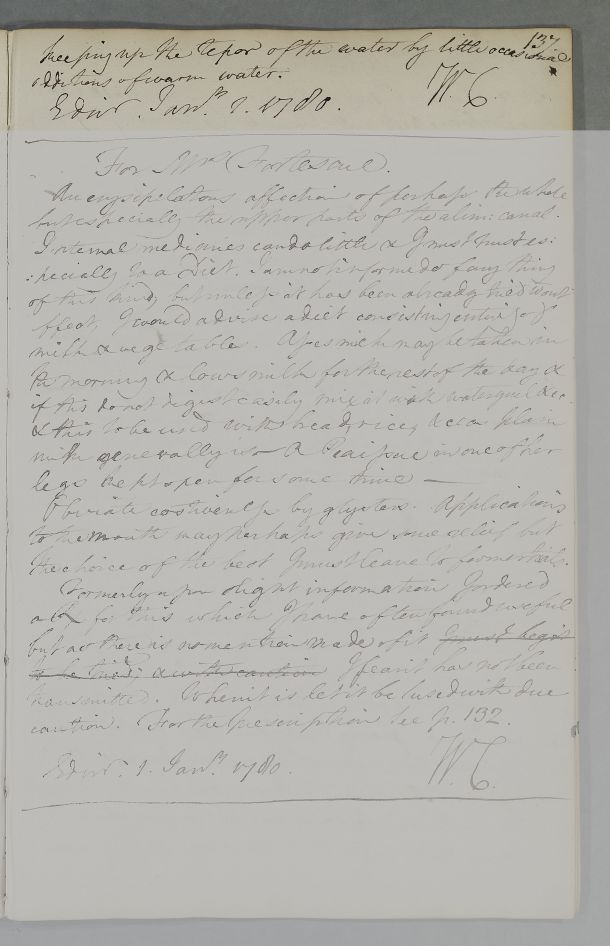 137
keeping up the tepor of the water by little occasional
additions of warm water.
Edinr. Janry. 1. 1780.
W. C.
For Mrs Fortescue.
An erysipelatous affection of perhaps the whole
but especially the upper parts of the alim: canal.
Internal medicines can do little & I must trust es:
:pecially to a Diet. I am not informed of any thing
of this kind, but unless it has been already tried wtout
effect, I would advise a diet consisting entirely of
milk & vegetables. Asses milk may be taken in
the morning & Cows milk for the rest of the day &
if this do not digest easily mix it with watergruel &c
& this to be used with bread, rice, &c or plain
milk generally so — A Pea issue in one of her
legs kept open for some time —
Obviate costiveness by glysters. Applications
to the mouth may perhaps give some relief but
the choice of the best I must leave to former trials.
Formerly upon slight information I ordered
a for this which I have often found useful
but as there is no mention made of it I must begin
to be tried, & with caution I fear it has not been
transmitted. When it is let it be used with due
caution. For the prescription see p. 132.
Edinr. 1. Janry. 1780.
W. C.